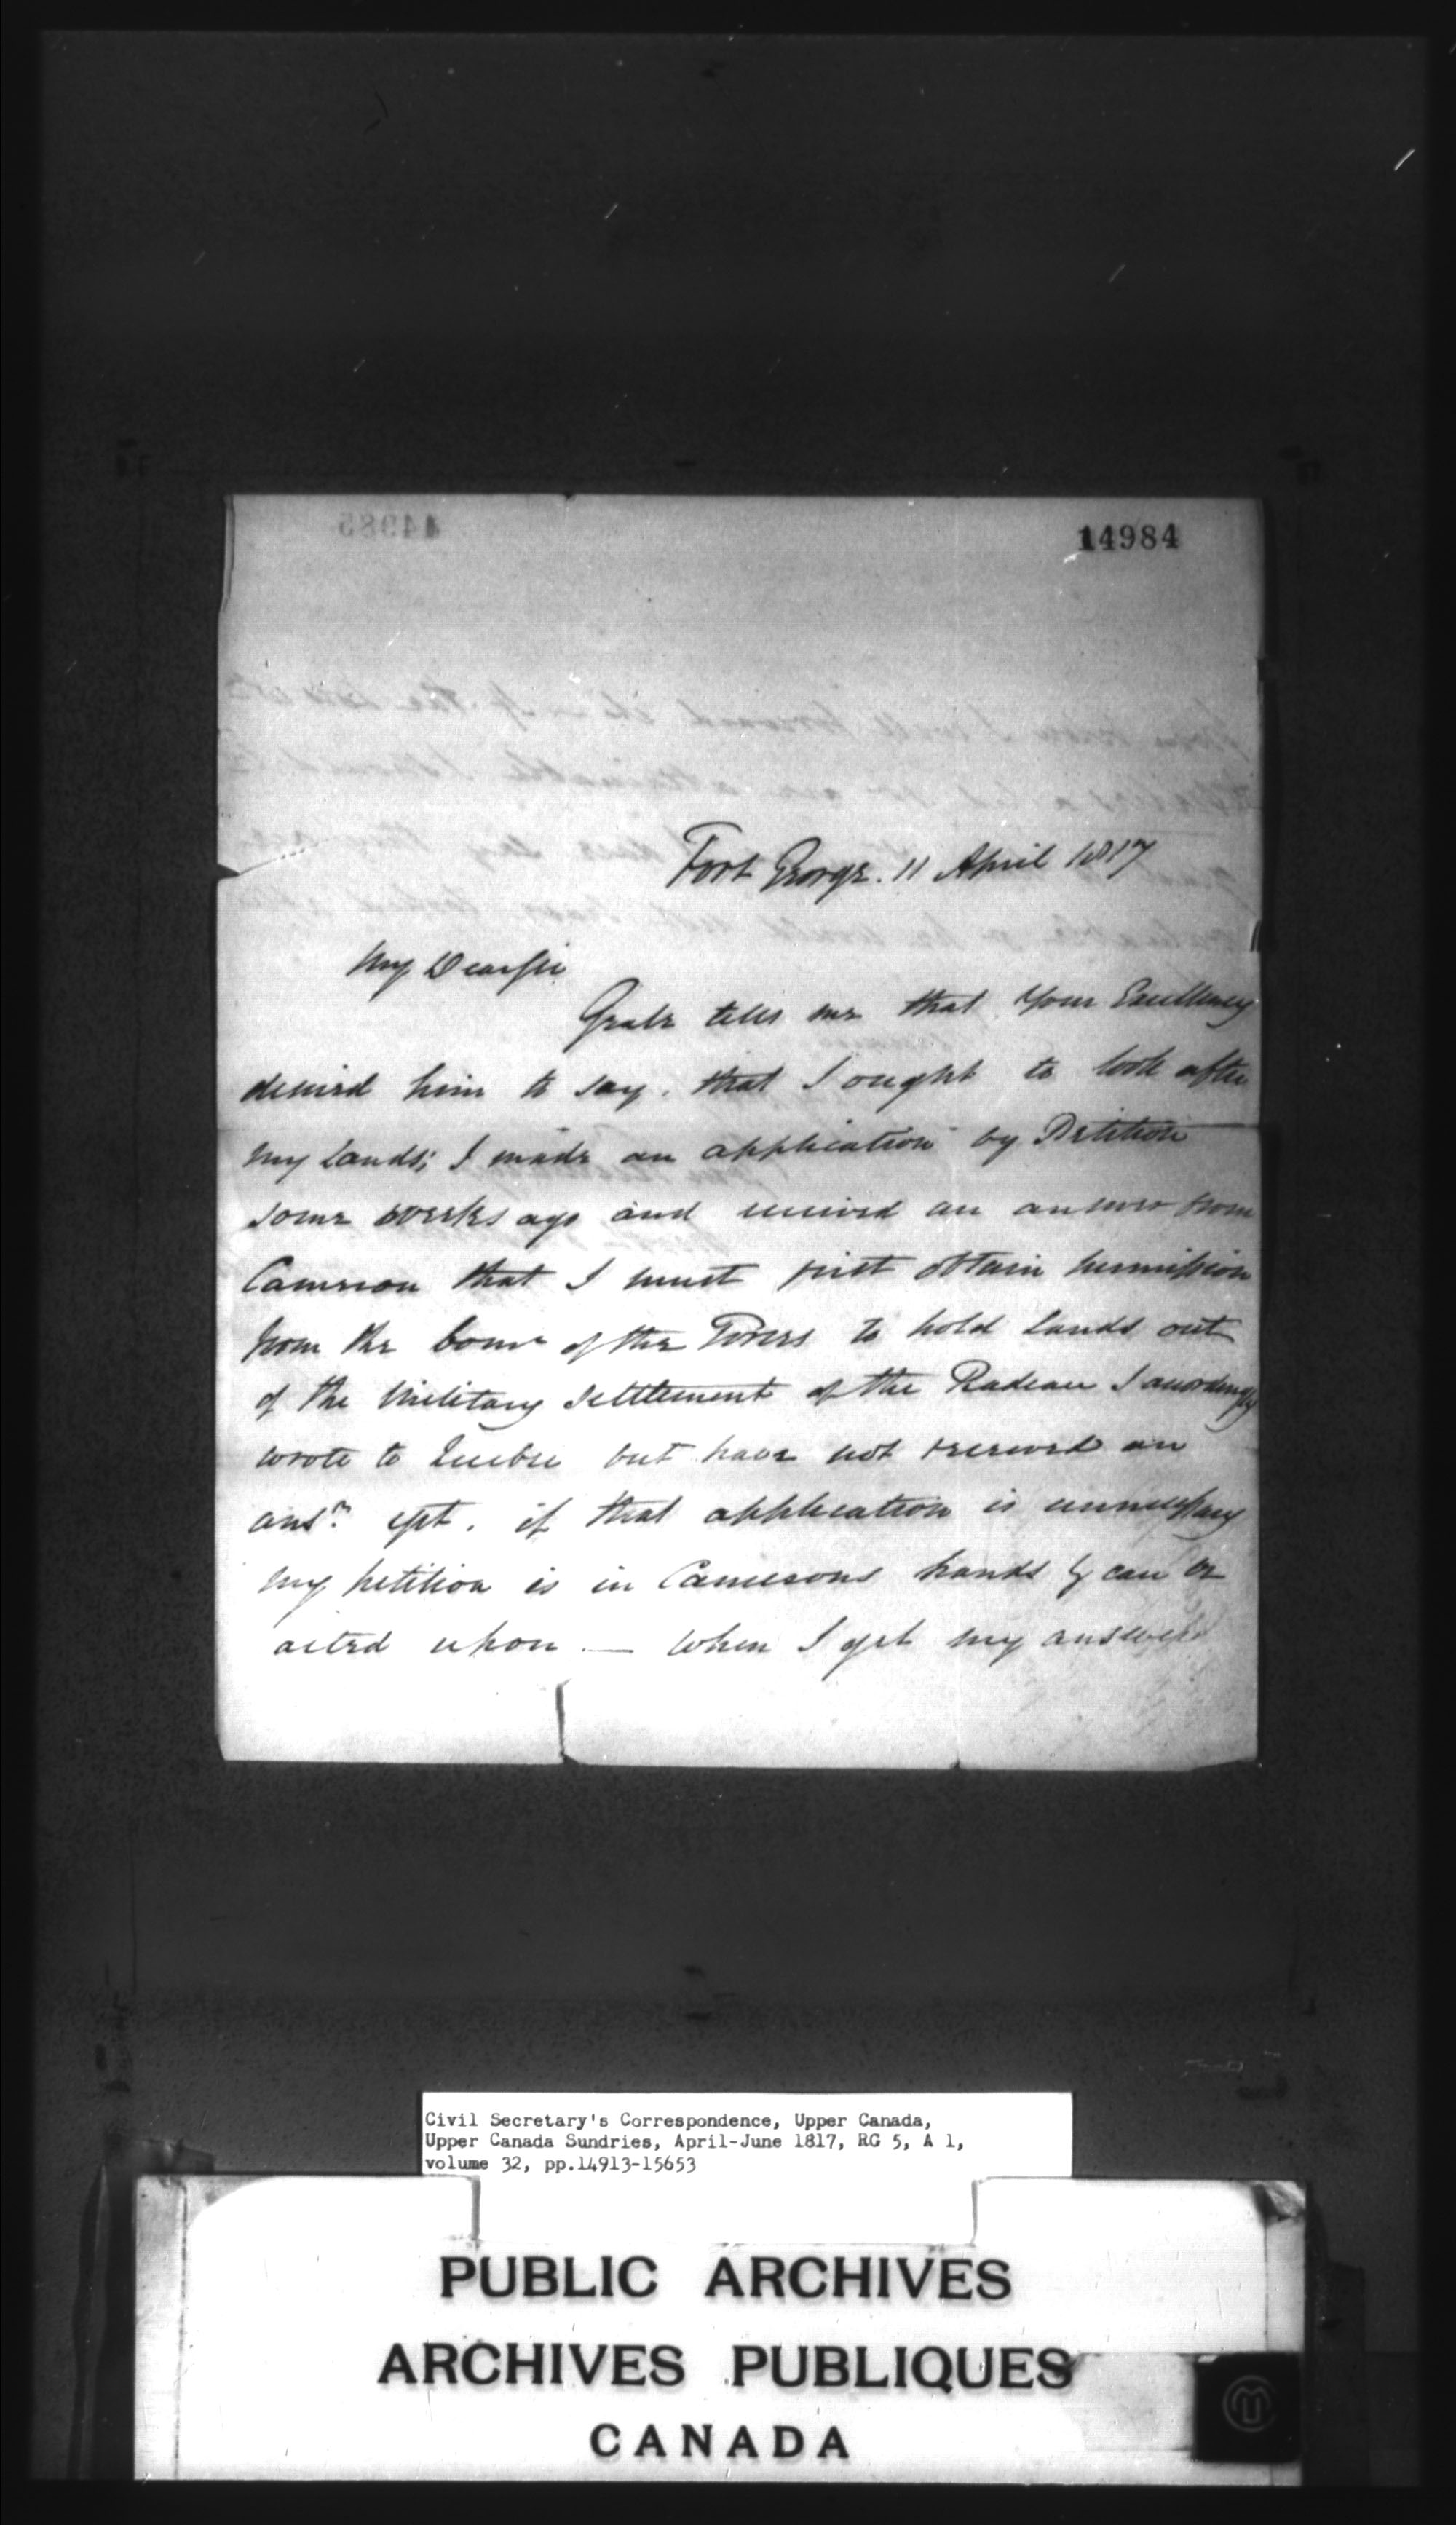 14984
Fort George. 11 April 1817
My Dear Sir
tells me that Your Excellency
desired him to say, that I ought to look after
my Lands; I made an application by Petition
some weeks ago and received an answer from
Cameron that I must first obtain permission
from the Comr of the Forces to hold Lands out
of the Military Settlement of the Radeau I accordingly
wrote to Quebec but have not received an
ansr. yet. if that application is unnecessary
my petition is in Camerons hands & can be
acted upon — When I get my answer
Civil Secretary's Correspondence, Upper Canada,
Upper Canada Sundries, April-June 1817, RG 5, A 1,
volume 32, pp.14913-15653
PUBLIC ARCHIVES
ARCHIVES PUBLIQUES
CANADA